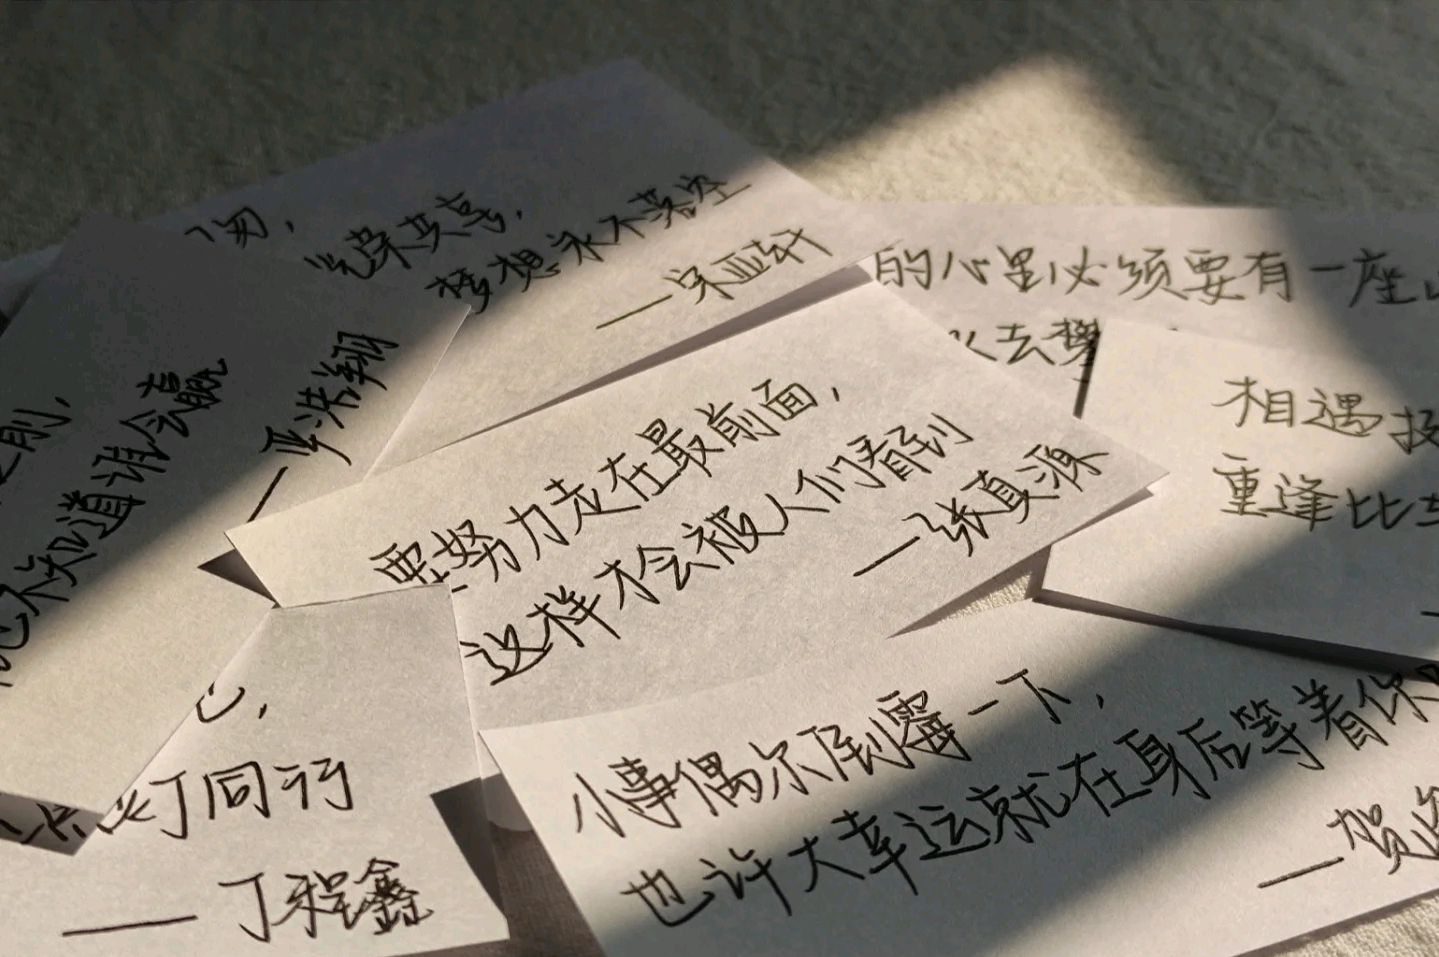 光荣共享,
梦想永不落空
—宋亚轩
的心里必须要有一座
么去攀
前,
也不知道谁会赢
—严浩翔
要努力走在最前面,
这样才会被人们看到
—张真源
相遇
重逢比
灯同行
——丁程鑫
小事偶尔倒霉一下,
也许大幸运就在身后等着你
—贺